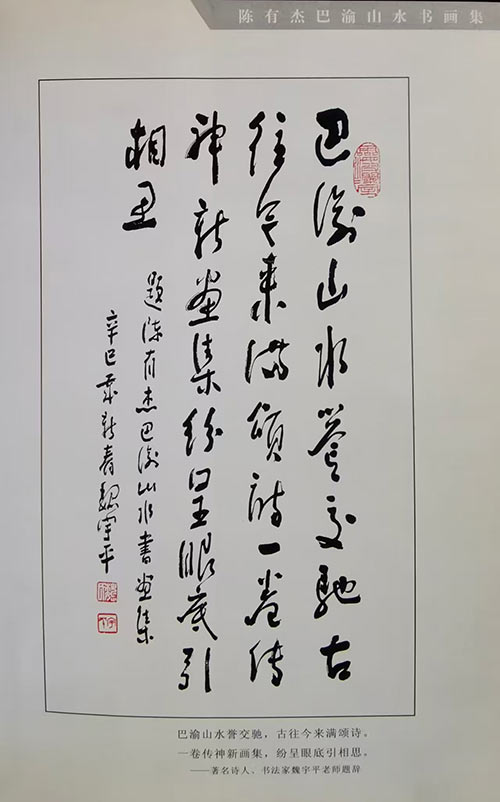 陈有杰巴渝山水书画集
巴渝山水誉交驰古
往今来满颂诗一卷传
神新画集纷呈眼底引
相思
题陈有杰巴渝山水书画集
辛巳年新春魏宇平
巴渝山水誉交驰，古往今来满颂诗。
一卷传神新画集，纷呈眼底引相思。
——著名诗人、书法家魏宇平老师题辞